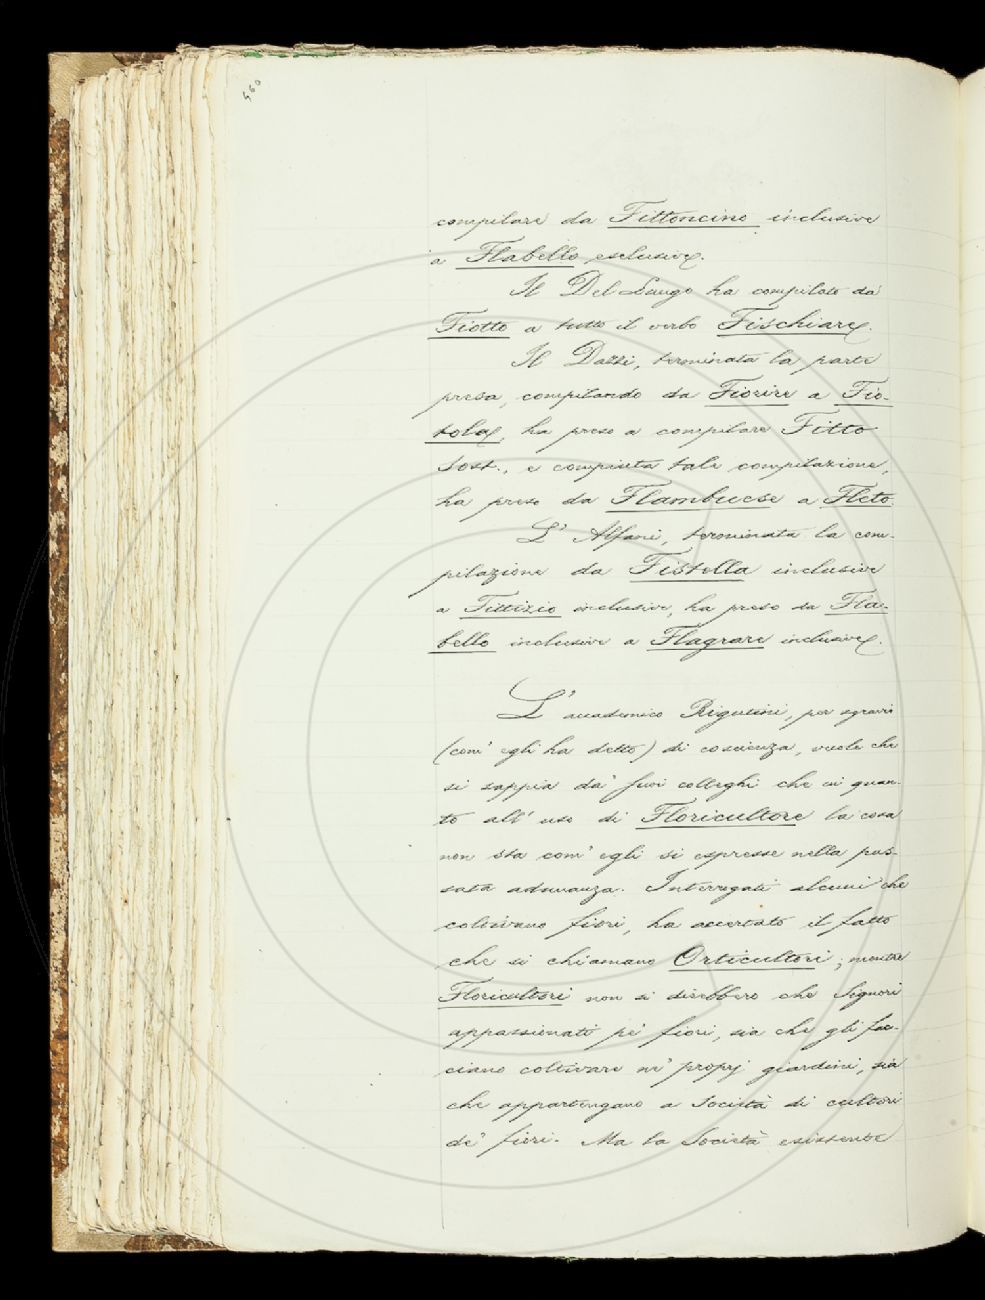 460
compilare da Fittoncino inclusive
a Flabello esclusive.
Il Del Lungo ha compilato da
Fiotto a tutto il verbo Fischiare.
Il Dazzi, terminata la parte
presa, compilando da Fiorire a Fis-
tola, ha preso a compilare Fitto
Sost., e compiuta tale compilazione,
ha preso da Flambucse a Fleto.
L' Alfani, terminata la com-
pilazione da Fistella inclusive
a Fittizio inclusive, ha preso da Fla-
bello inclusive a Flagrare inclusive.
L' accademico Rigutini, per sgravi
(com' egli ha detto) di coscienza, vuole che
si sappia da' suoi colleghi che in quan-
to all' uso di Floricultore la cosa
non sta com' egli si espresse nella pas-
sata adunanza. Interrogati alcuni che
coltivano fiori, ha accertato il fatto
che si chiamano Orticultori; mentre
Floricultori non si direbbero che Signori
appassionati pe' fiori, sia che gli fac-
ciano coltivare ne' proprj giardini, sia
che appartengano a Società di cultori
de' fiori. Ma la Società esistente